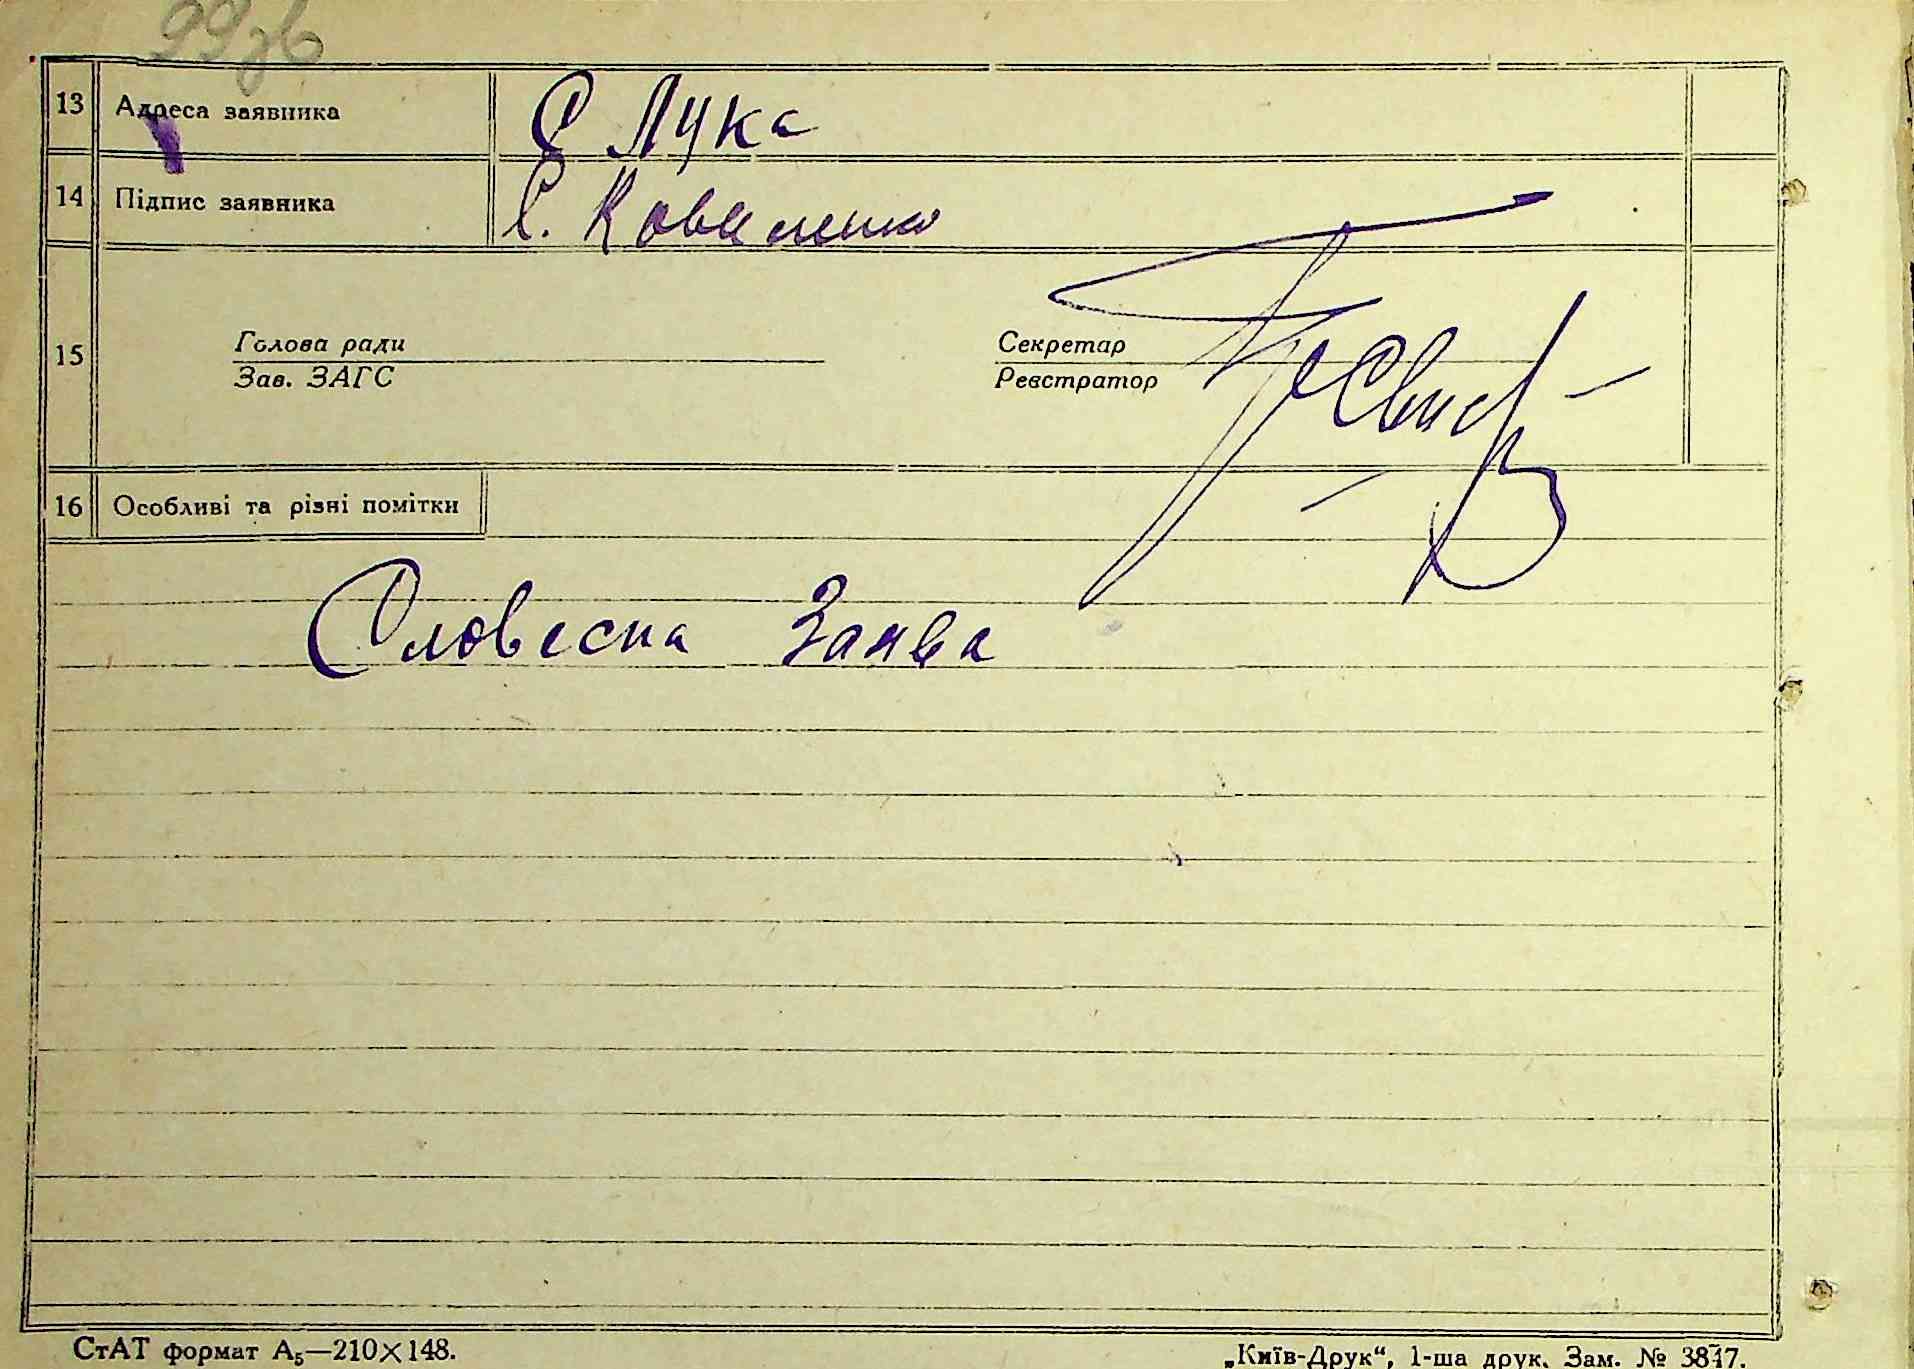 99зв
13 Адреса заявника С Лука
14 Підпис заявника С. Коваленко
15 Голова ради Секретар
Зав. ЗАГС Реєстратор
16 Особливі та різні помітки
Словесна Заява
СтАТ формат А₅—210×148.
„Київ-Друк“, 1-ша друк. Зам. № 3847.